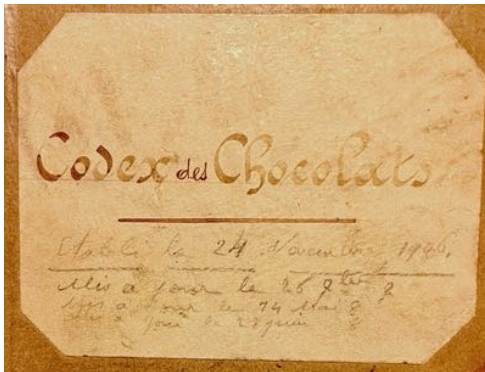 Codex des Chocolats
Etabli le 24 Novembre
Mis à jour le 26
Mis à jour le 14 Mai
Mis à jour le 27 juin